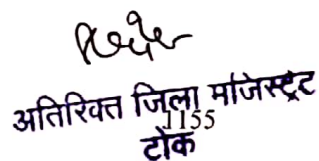 अतिरिक्त जिला मजिस्ट्रेट
1155
टोंक